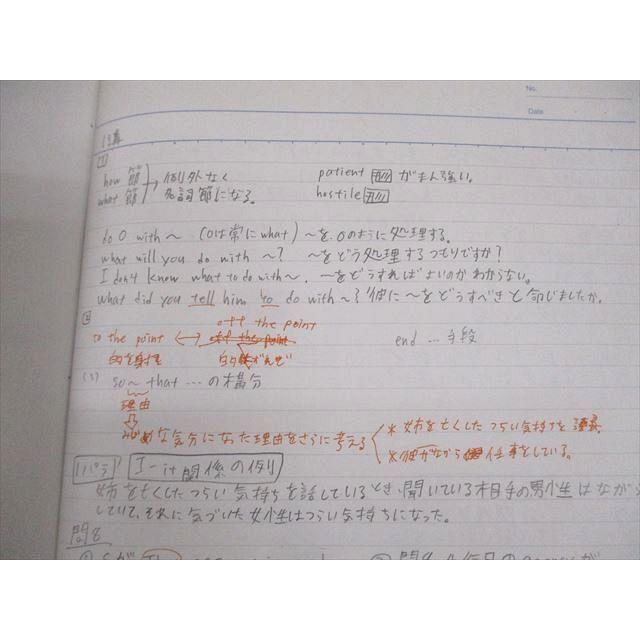 No.
Date
1講
1
how 節 例外なく patient 形 がまん強い。
what 節 名詞節になる。 hostile 形
do O with ~ (Oは常にwhat) ~を、Oのように処理する。
what will you do with ~? ~をどう処理するつもりですか?
I don't know what to do with ~. ~をどうすればよいのかわからない。
what did you tell him to do with ~? 彼に~をどうすべきと命じましたか。
2
off the point
to the point ←→ off the point end … 手段
的を射た
(3) so ~ that … の構分
理由
な気分になった理由をさらに考える
*姉を亡くしたつらい気持ちを
*彼がながら仕事をしている。
1パラ I-it関係の例
姉を亡くしたつらい気持ちを話しているとき、聞いている相手の男性はながら
していて、それに気づいた女性はつらい気持ちになった。
問8